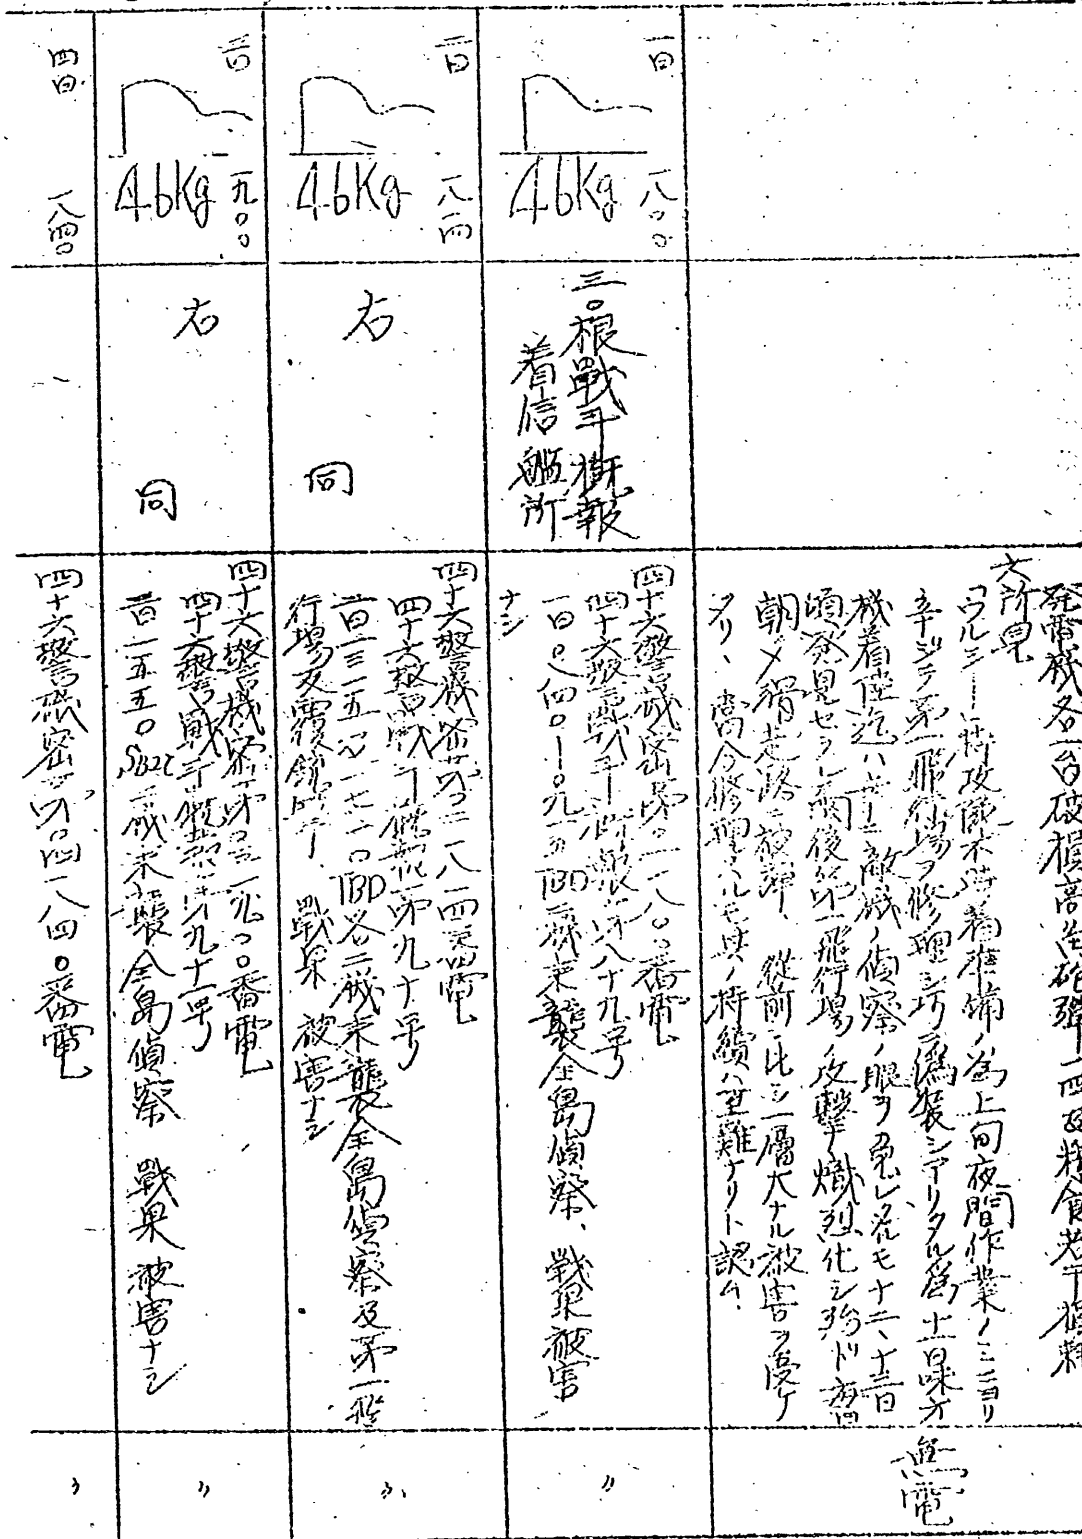 発電機各一台破損高角砲弾一四〇糧食若干損耗
六所見
「ウルシー」特攻隊不時着準備ノ為上旬夜間作業ノミニヨリ
辛ジテ第一飛行場ヲ修理シ巧ニ偽装シアリタル為十日味方
機着陸迄ハ敵機ノ偵察ノ眼ヲ免レタルモ十二、十三日
頃発見セラレ爾後第一飛行場ノ攻撃熾烈化シ殆ド毎日
朝夕滑走路ニ被弾、従前ニ比シ一層大ナル被害ヲ受ケ
タリ、尚今修理スルモ其ノ持続ハ至難ナリト認ム、
無電
一日 一八〇〇
46Kg
三〇根戦斗概報
着信艦所
四十六警機密第〇一一八〇〇番電
四十六警戦斗概報第八十九号
一日〇八四〇―〇九一五TBD二機来襲全島偵察、戦果被害
ナシ
〃
二日 一八一四
46Kg
右 同
四十六警機密第〇二一八一四番電
四十六警戦斗概報第九十号
二日 TBD各二機来襲全島偵察及第一飛
行場反覆銃爆撃、戦果 被害ナシ
〃
三日 一九〇〇
46Kg
右 同
四十六警機密第〇三一九〇〇番電
四十六警戦斗概報第九十一号
三日一五五〇SB2C二機来襲全島偵察 戦果 被害ナシ
〃
四日 一八四〇
四十六警機密第〇四一八四〇番電
〃